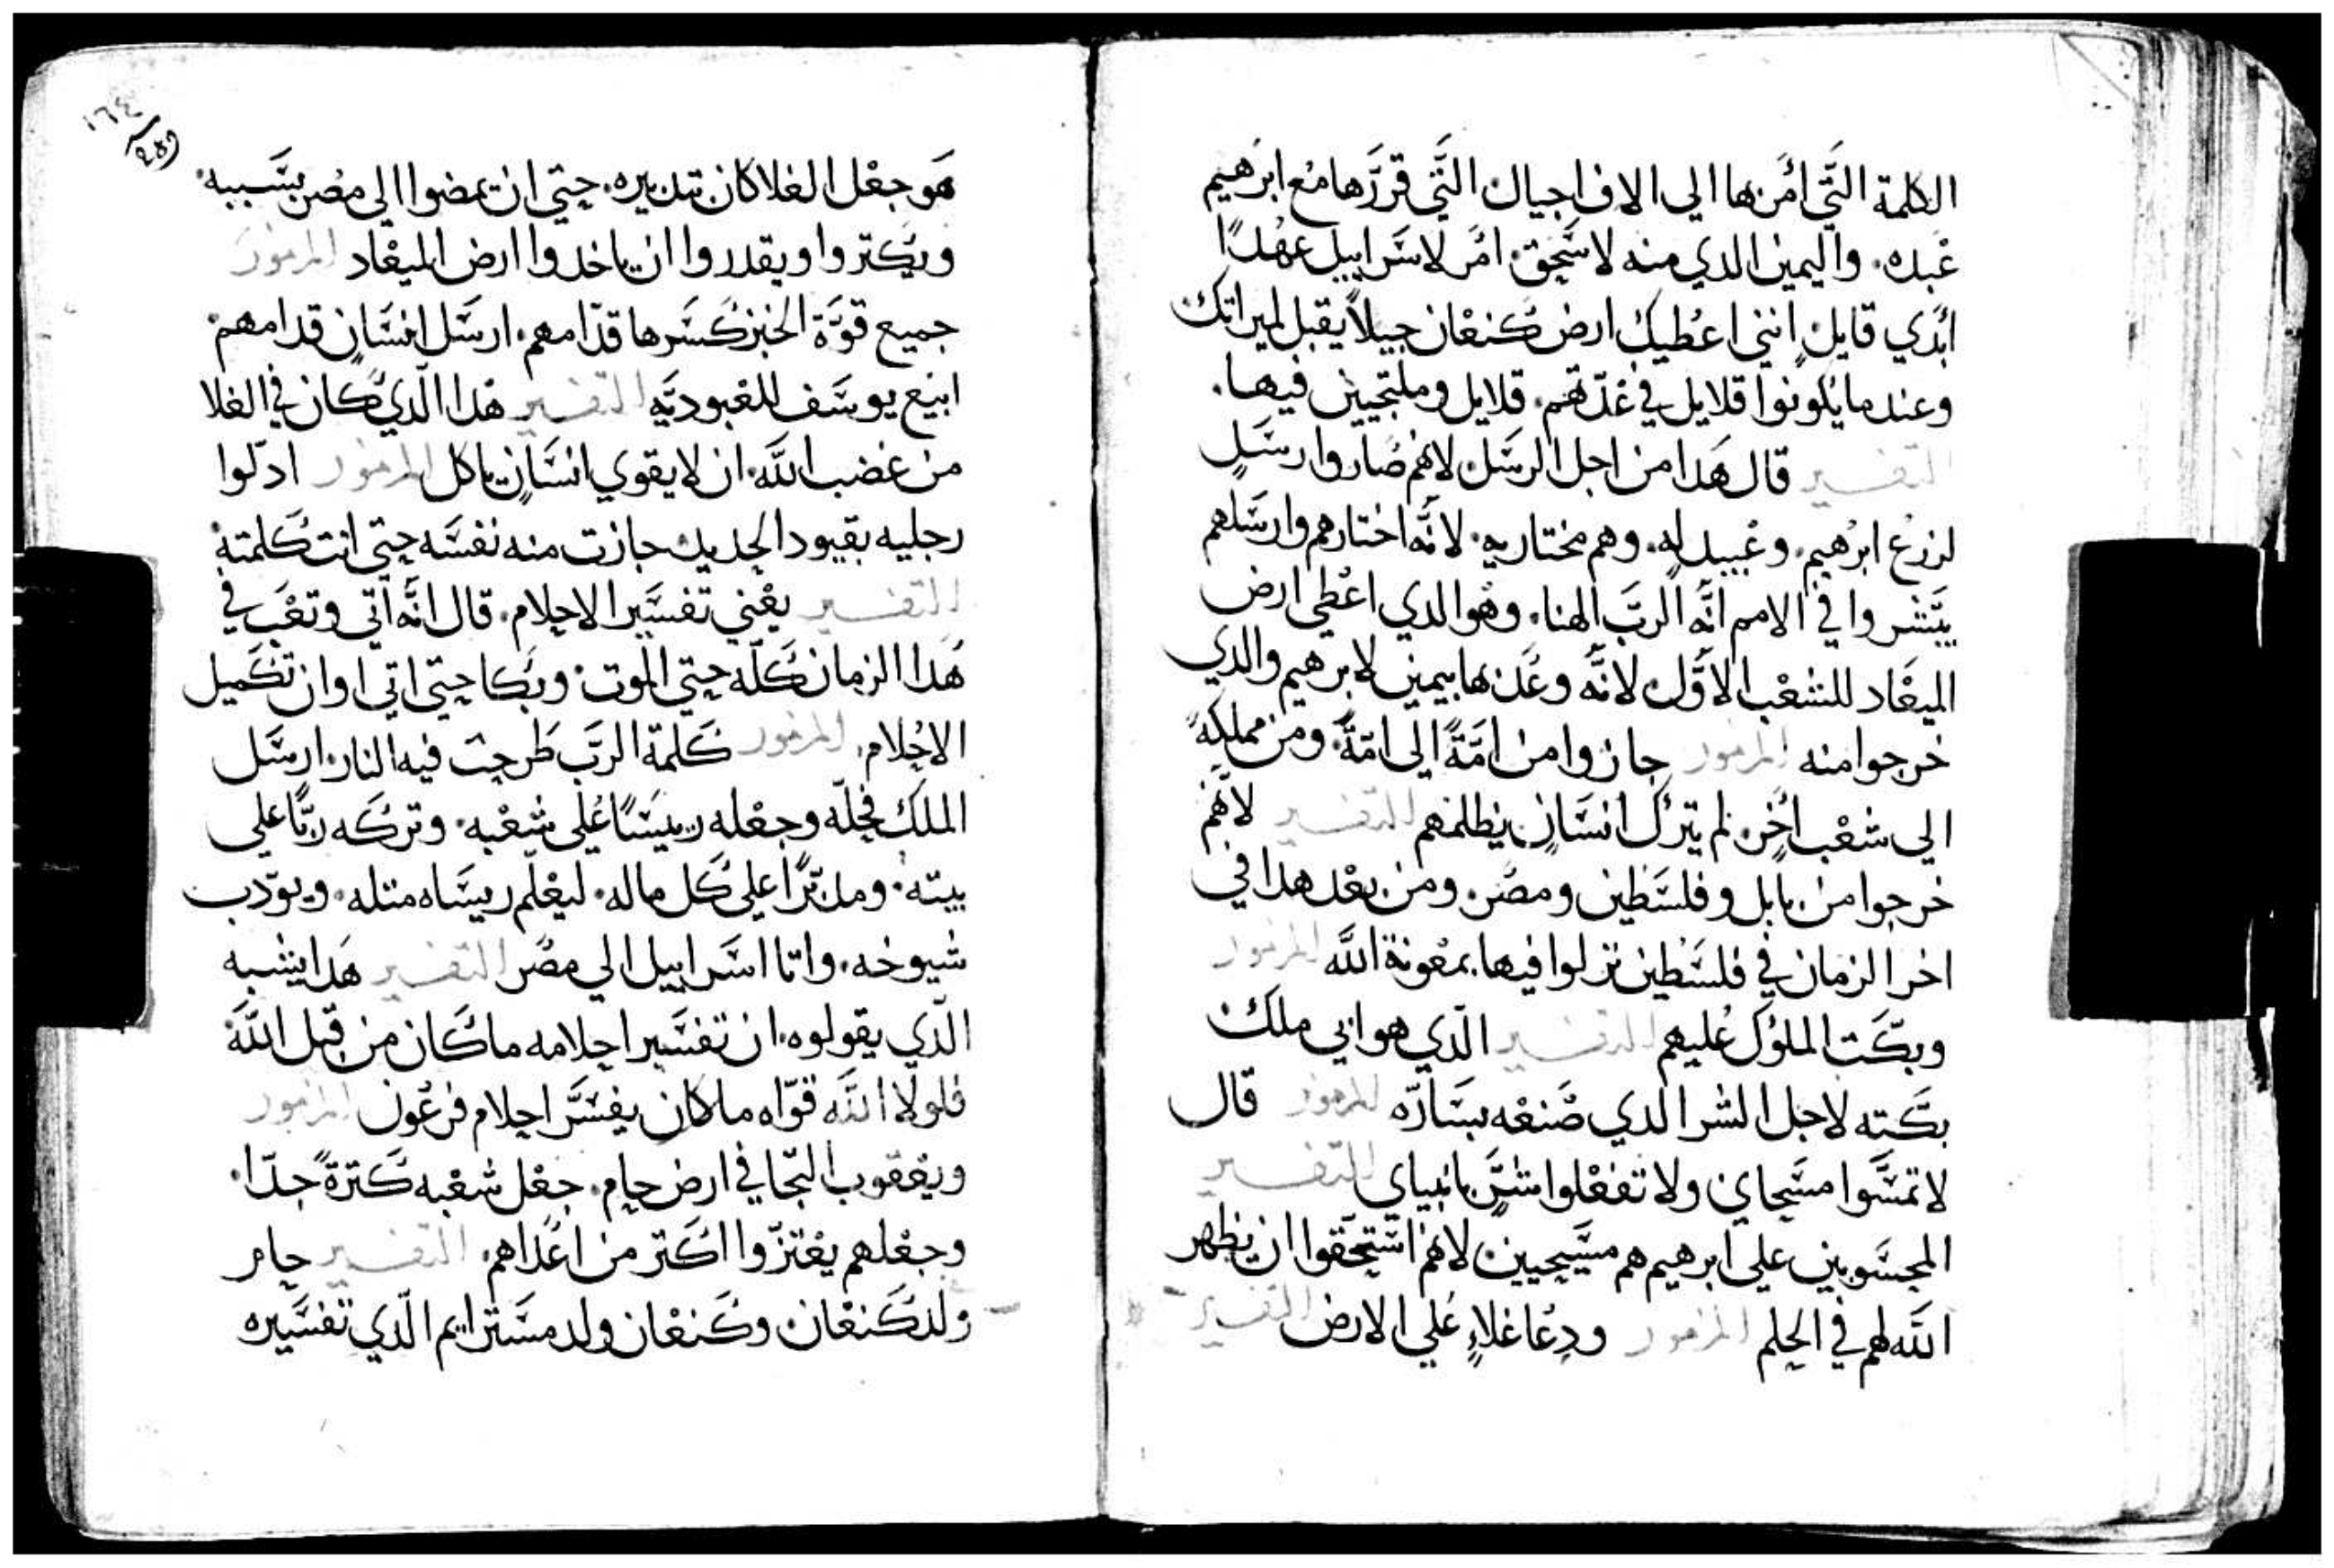 الكلمة التَّي امَرنها الي الاف اجيال التَّي قرَّرَها مَع ابرَهيم
عَبده. واليمين الدي منه لاسَحِق. امَر لاسَراييل عهدًا
ابَدي قايلٍ انني اعُطيك ارض كنعْان جيلاً يقبل لميراتك
وعند ما يكونوا قلايل في عَدّتهم. قلايل وملتجيين فيها.
التفسير قال هَدا من اجل الرسَل لانهم صَاروا رسَلٍ
لزرع ابرَهيم. وعَبيد له. وهم مختاريه. لانَّه اختارهم وارسَلهم
يبَشروا في الامم انَّه الرَبّ الهنا. وهو الدي اعُطي ارض
الميعَاد للشعْب الاوَّل لانَّه وعَدها بيمين لابرهيم والدي
خرجوا منه المزمور جازوا من امَّةً الي امَّة. ومن مملكةً
الي شعْب اخَرٍ. لم يترك انسَانٍ يظلمهم التفسير لانَّهم
خرجوا من بابل وفلسَطين ومصَر. ومن بعْد هدا في
اخر الزمان في فلسَطين نزلوا فيها بمعَونة الله المزمور
وبكَّت الملوك عَليهم التفسير الَّدي هو ابي ملك
بكَّته لاجل الشر الدي صَنعْه بسَارَّه المزمور قال
لا تمسَّوا مسَحاي ولا تفعْلوا شَرٍّ بانبياي التفسير
المحسَوبين علي ابرهيم هم مسَيحيين لانهم اسَتحَقوا ان يظهر
الله لهم في الحلم المزمور ودعَا غلاءٍ عَلي الارض التفسير
١٦٤
هَو جعْل الغلا كان تدبيره. حتي ان يمضوا الي مصَر بسَببه.
ويكتروا ويقدروا ان ياخدوا ارض الميعْاد المزمور
جميع قوَّة الخبز كسَرها قدّامهم. ارسَل انسَانٍ قدامهم
ابيع يوسَف للعْبوديَّه التفسير هَدا الَّدي كان في الغلا
من غضب الله. ان لا يقوي انسَانٍ ياكل المزمور ادلّوا
رجليه بقيود الحديد جازت منه نفسَه حتي اتت كلمته
التفسير يعْني تفسَير الاحلام. قال انَّه اتي وتعْب في
هَدا الزمان كلّه حتي الموت. وبكا حتي اتي اوان تكميل
الاحلام. المزمور كلمة الربَّ طرحت فيه النار. ارسَل
الملك فحلّه وجعْله رييسَاً عَلي شعْبه. وتركه ربَّاً علي
بيته. ومدبّرًا علي كل ماله. ليعْلّم ريسَاه متله. ويوّدب
شيوخه. واتا اسَراييل الي مصَر التفسير هَدا يشبه
الَّدي يقولوه. ان تفسَير احلامه ما كان من قبل الله
فلولا الله قوّاه ما كان يفسَّر احلام فرعَون المزمور
ويعْقوب التجا في ارض حام. جعْل شعْبه كترةً جدّا.
وجعْلهم يعْتزّوا اكتر من اعَداهم. التفسير حام
ولد كنعْان وكنعْان ولد مسَترايم الَّدي تفسَيره